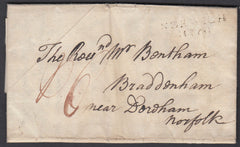 The Revnd Mr Bentham
Braddenham
near Dereham
Norfolk